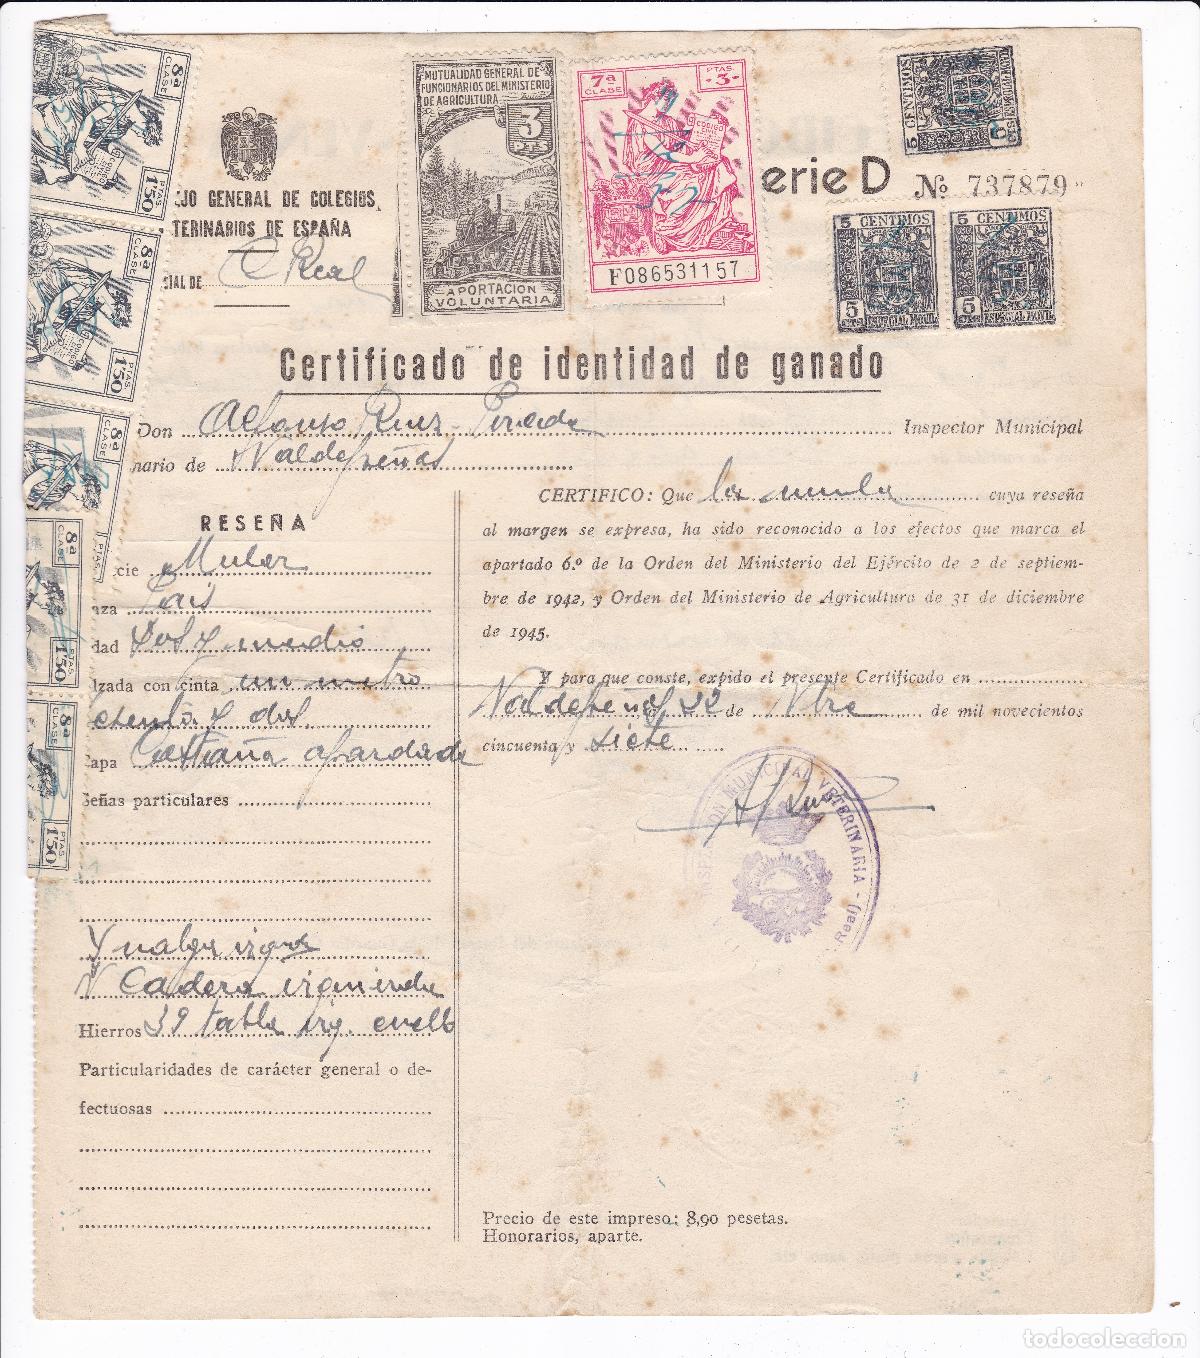 8ª CLASE
PTAS 1'50
8ª CLASE
PTAS 1'50
8ª CLASE
PTAS
8ª CLASE
PTAS 1'50
8ª CLASE
PTAS 1'50
MUTUALIDAD GENERAL DE
FUNCIONARIOS DEL MINISTERIO
DE AGRICULTURA
3
PTS
APORTACION
VOLUNTARIA
7ª CLASE
PTAS. -3-
CODIGO
F086531157
5 CENTIMOS
5 CTS
5 CENTIMOS
5 CTS ESPECIAL MOVIL
5 CENTIMOS
5 CTS ESPECIAL MOVIL
erie D Nº 737879
EJO GENERAL DE COLEGIOS
TERINARIOS DE ESPAÑA
CIAL DE C Real
Certificado de identidad de ganado
Don Alfonso Ruiz Pineda Inspector Municipal
nario de Valdepeñas
RESEÑA
cie Mular
nza Pais
dad Dos y medio
lzada con cinta un metro
y dos
Capa Castaña
Señas particulares
Y nalga izqda
V Cadera izquierda
Hierros 39 tabla izq. cuello
Particularidades de carácter general o de-
fectuosas
CERTIFICO: Que la mula cuya reseña
al margen se expresa, ha sido reconocido a los efectos que marca el
apartado 6.º de la Orden del Ministerio del Ejército de 2 de septiem-
bre de 1942, y Orden del Ministerio de Agricultura de 31 de diciembre
de 1945.
Y para que conste, expido el presente Certificado en
Valdepeñas 22 de Nbre de mil novecientos
cincuenta y siete
A Ruiz
INSPECCION MUNICIPAL VETERINARIA - (Real)
Precio de este impreso: 8,90 pesetas.
Honorarios, aparte.
todocoleccion